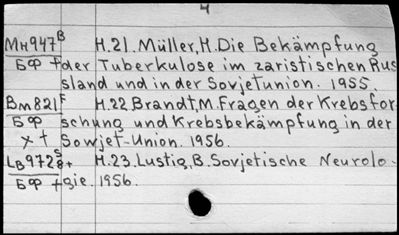 4
Mн947В Н.21. Müller, H. Die Bekämpfung
БФ + der Tuberkulose im zaristischen Rus
sland und in der Sovjetunion. 1955.
Вm821F Н.22 Brandt, M. Fragen der Krebsfor-
БФ schung und Krebsbekämpfung in der
x † Sowjet-Union. 1956.
Lв9728S+ Н.23. Lustig, B. Sovjetische Neurolo-
БФ + gie. 1956.